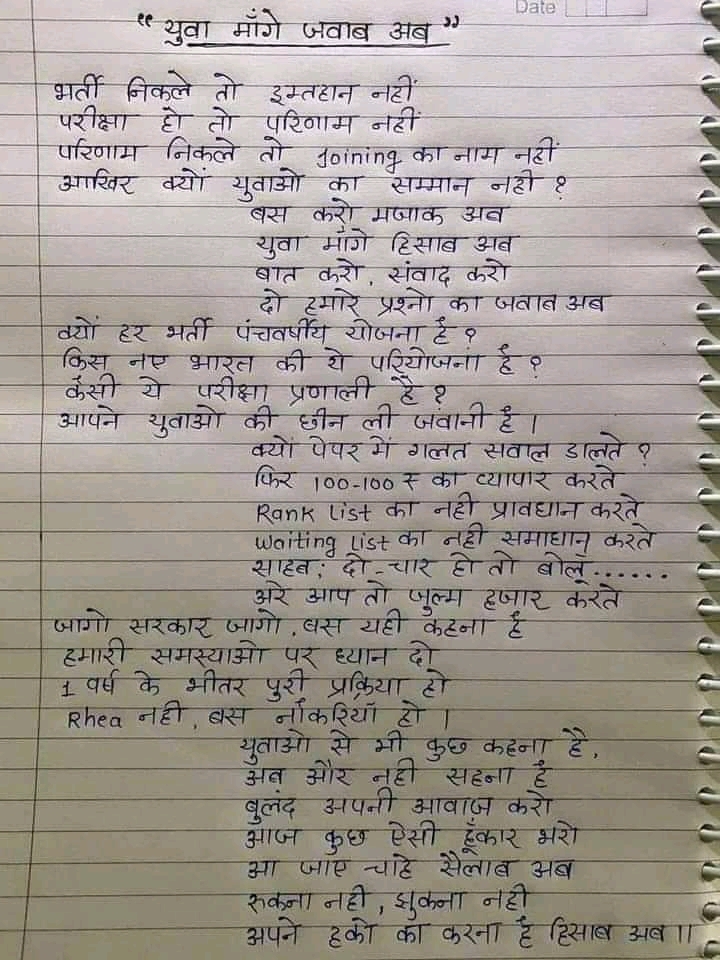 Date
“ युवा माँगे जवाब अब ”
भर्ती निकले तो इम्तहान नहीं
परीक्षा हो तो परिणाम नहीं
परिणाम निकले तो Joining का नाम नहीं
आखिर क्यों युवाओ का सम्मान नही ?
बस करो मजाक अब
युवा माँगे हिसाब अब
बात करो, संवाद करो
दो हमारे प्रश्नो का जवाब अब
क्यों हर भर्ती पंचवर्षीय योजना है ?
किस नए भारत की ये परियोजना है ?
कैसी ये परीक्षा प्रणाली है ?
आपने युवाओ की छीन ली जवानी है ।
क्यों पेपर में गलत सवाल डालते ?
फिर 100-100 रु का व्यापार करते
Rank List का नही प्रावधान करते
Waiting List का नही समाधान करते
साहब; दो-चार हो तो बोलूँ......
अरे आप तो जुल्म हजार करते
जागो सरकार जागो, बस यही कहना है
हमारी समस्याओ पर ध्यान दो
1 वर्ष के भीतर पुरी प्रक्रिया हो
Rhea नही, बस नौकरियाँ हो ।
युवाओ से भी कुछ कहना है,
अब और नही सहना है
बुलंद अपनी आवाज़ करो
आज कुछ ऐसी हूँकार भरो
आ जाए चाहे सैलाब अब
रुकना नही, झुकना नही
अपने हको का करना है हिसाब अब ॥